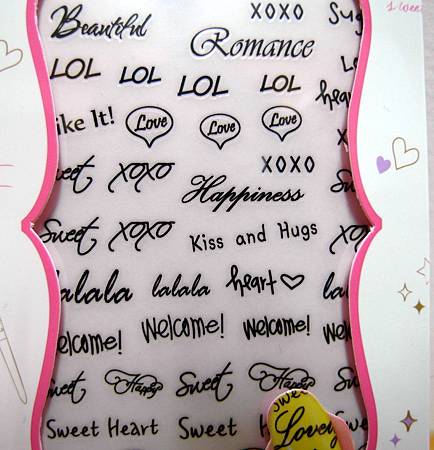 Beautiful XOXO Sug
Romance
LOL LOL LOL LOL
ike It! Love Love Love heart
XOXO
Sweet XOXO
Happiness
Sweet XOXO Kiss and Hugs XO
lalala lalala heart
Welcome! Welcome! Welcome!
Sweet Happy Sweet Happy
Sweet Heart Sweet Sweet
Lovely